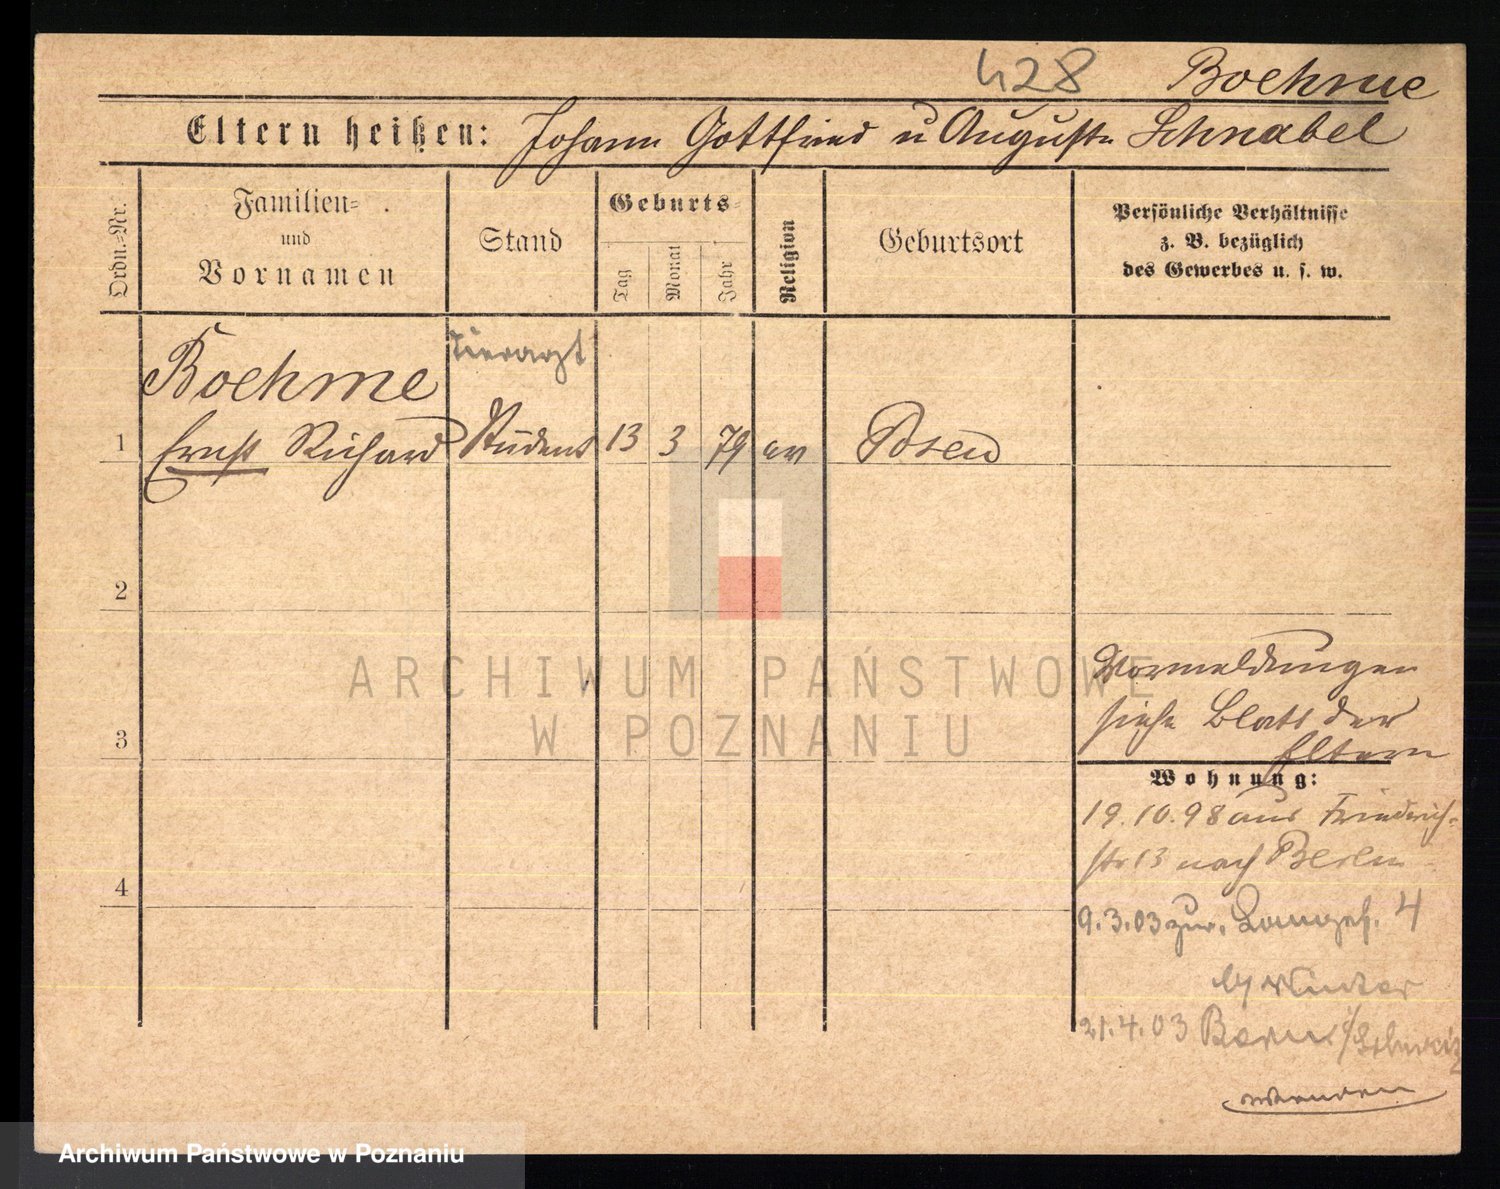 428 Boehme
Eltern heißen: Johann Gottfried u Auguste Schnabel
Ordn.=Nr.
Familien=
und
Vornamen
Stand
Geburts=
Tag
Monat
Jahr
Religion
Geburtsort
Persönliche Verhältnisse
z. B. bezüglich
des Gewerbes u. s. w.
Tierarzt
Boehme
1 Ernst Richard Student 13 3 79 ev Posen
2
Vormeldungen
siehe Blatt der
Eltern
3
Wohnung:
19.10.98 aus Friedrich-
str 13 nach Berlin
4
9.3.03 zur. 4
by Winter
21.4.03 Bern i/Schweiz
wenden
ARCHIWUM PAŃSTWOWE
W POZNANIU
Archiwum Państwowe w Poznaniu